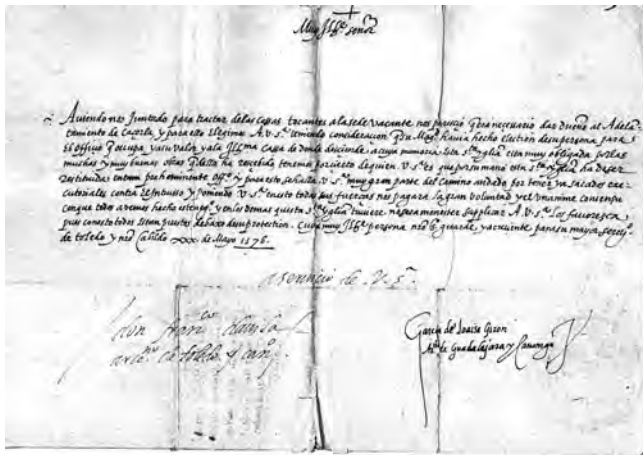 Muy Ill.e señor
Aviendo nos Juntado para tractar de las cossas tocantes a la sede vacante, nos parescio q̃ era necessario dar dueño al Adelā
tamiento de Caçorla, y para esto elegimos A V. s.ª teniendo consideracion q̃ su Mag.d havia hecho election de su persona para
El officio q̃ occupa, y a su valor y a la Ill.ma cassa de donde desciende, a cuya memoria esta s.ta yglia esta muy obligada por las
muchas y muy buenas obras q̃ della ha recebido, tenemos por cierto
restituida en tan preheminente off.º y para esto se halla V. s.ª muy gran parte del camino andado por tener ya sacados exe-
cutoriales contra el intruso y poniendo V. s.ª en esto todas sus fuerças nos pagara la gran voluntad y el unanime consenso
con que todos avemos hecho
pues con esto todos seran puestos debaxo de su protection. Cuya muy Ill.e persona nr̃o s.or guarde, y acresciente para su mayor servi.º
de toledo y nr̃o Cabildo xxx. de Mayo 1576.
a servicio de V. s.ª
don fran.co
de toledo y can.º
Garcia de loaisa Giron
de Guadalajara y Canonigo